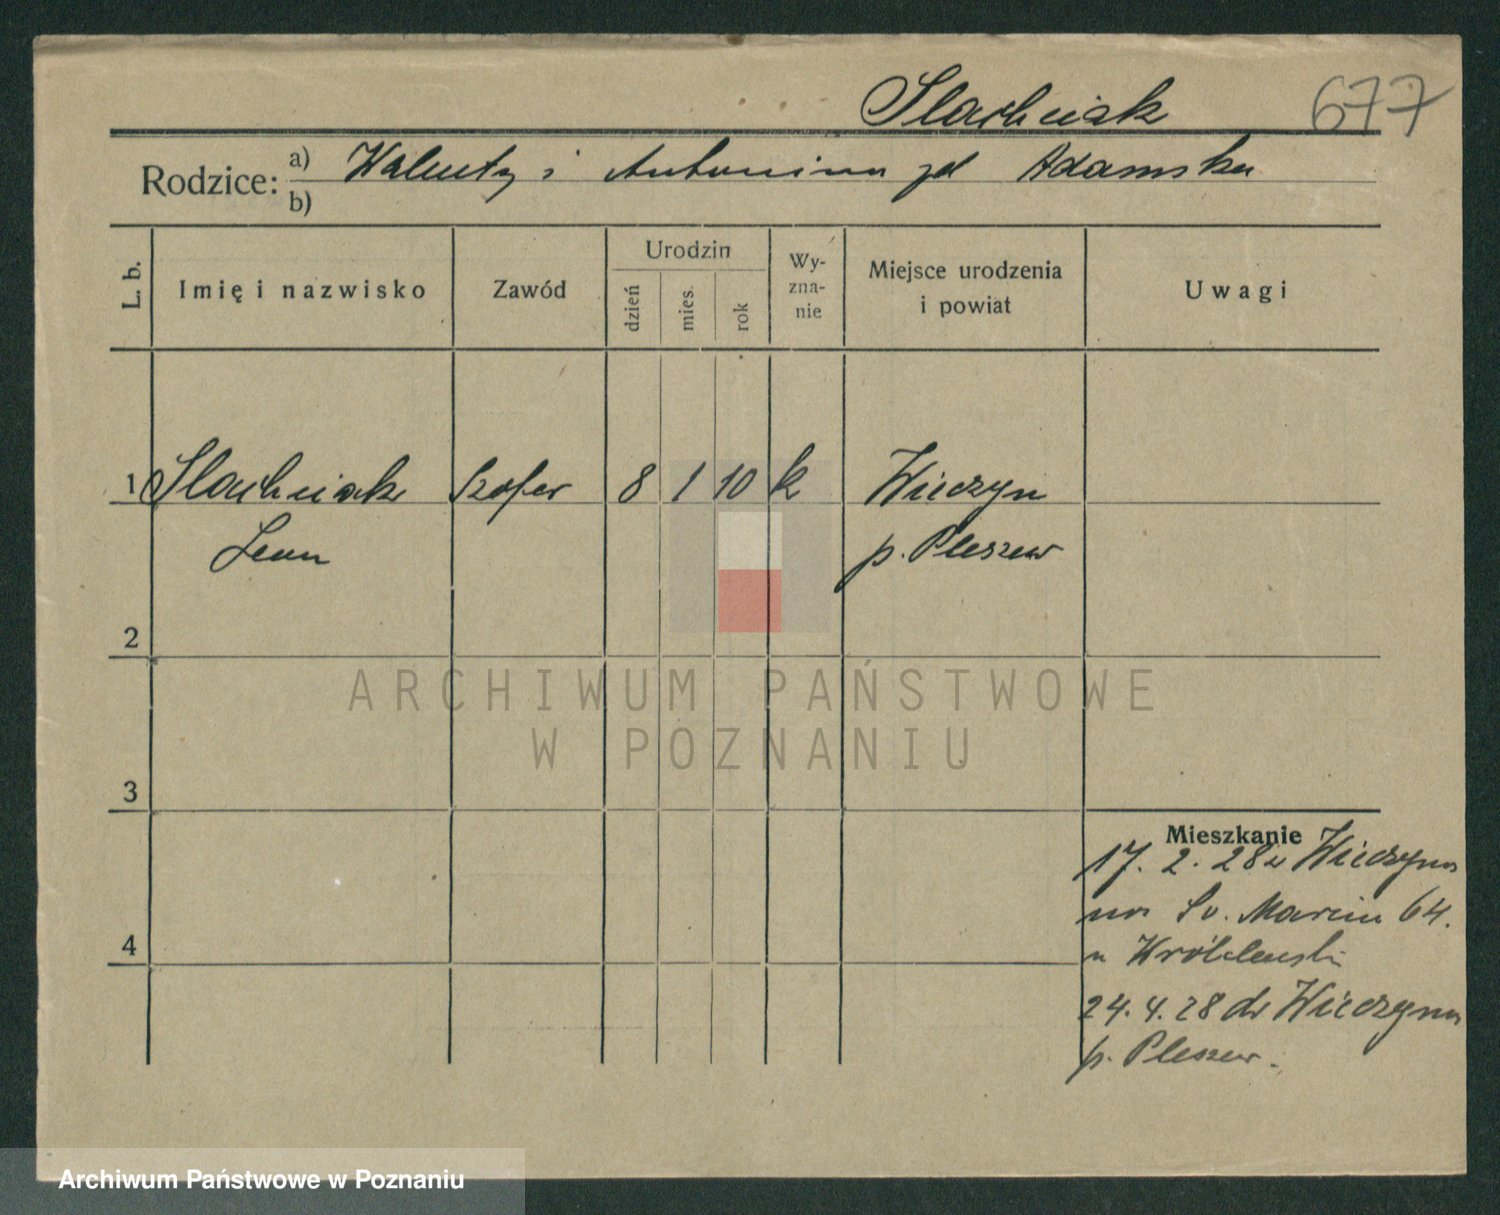 Stachniak 677
Rodzice: a) Walenty i Antonina zd Adamska
b)
L. b. Imię i nazwisko Zawód Urodzin dzień mies. rok Wy-zna-nie Miejsce urodzenia i powiat Uwagi
1 Stachniak Szofer 8 1 10 k Wieczyn
Leon p. Pleszew
2
3
4
Mieszkanie
17. 2. 28 z Wieczyna
na Św. Marcin 64.
u Wróblewski
24. 4. 28 do Wieczyna
p. Pleszew.
ARCHIWUM PAŃSTWOWE
W POZNANIU
Archiwum Państwowe w Poznaniu